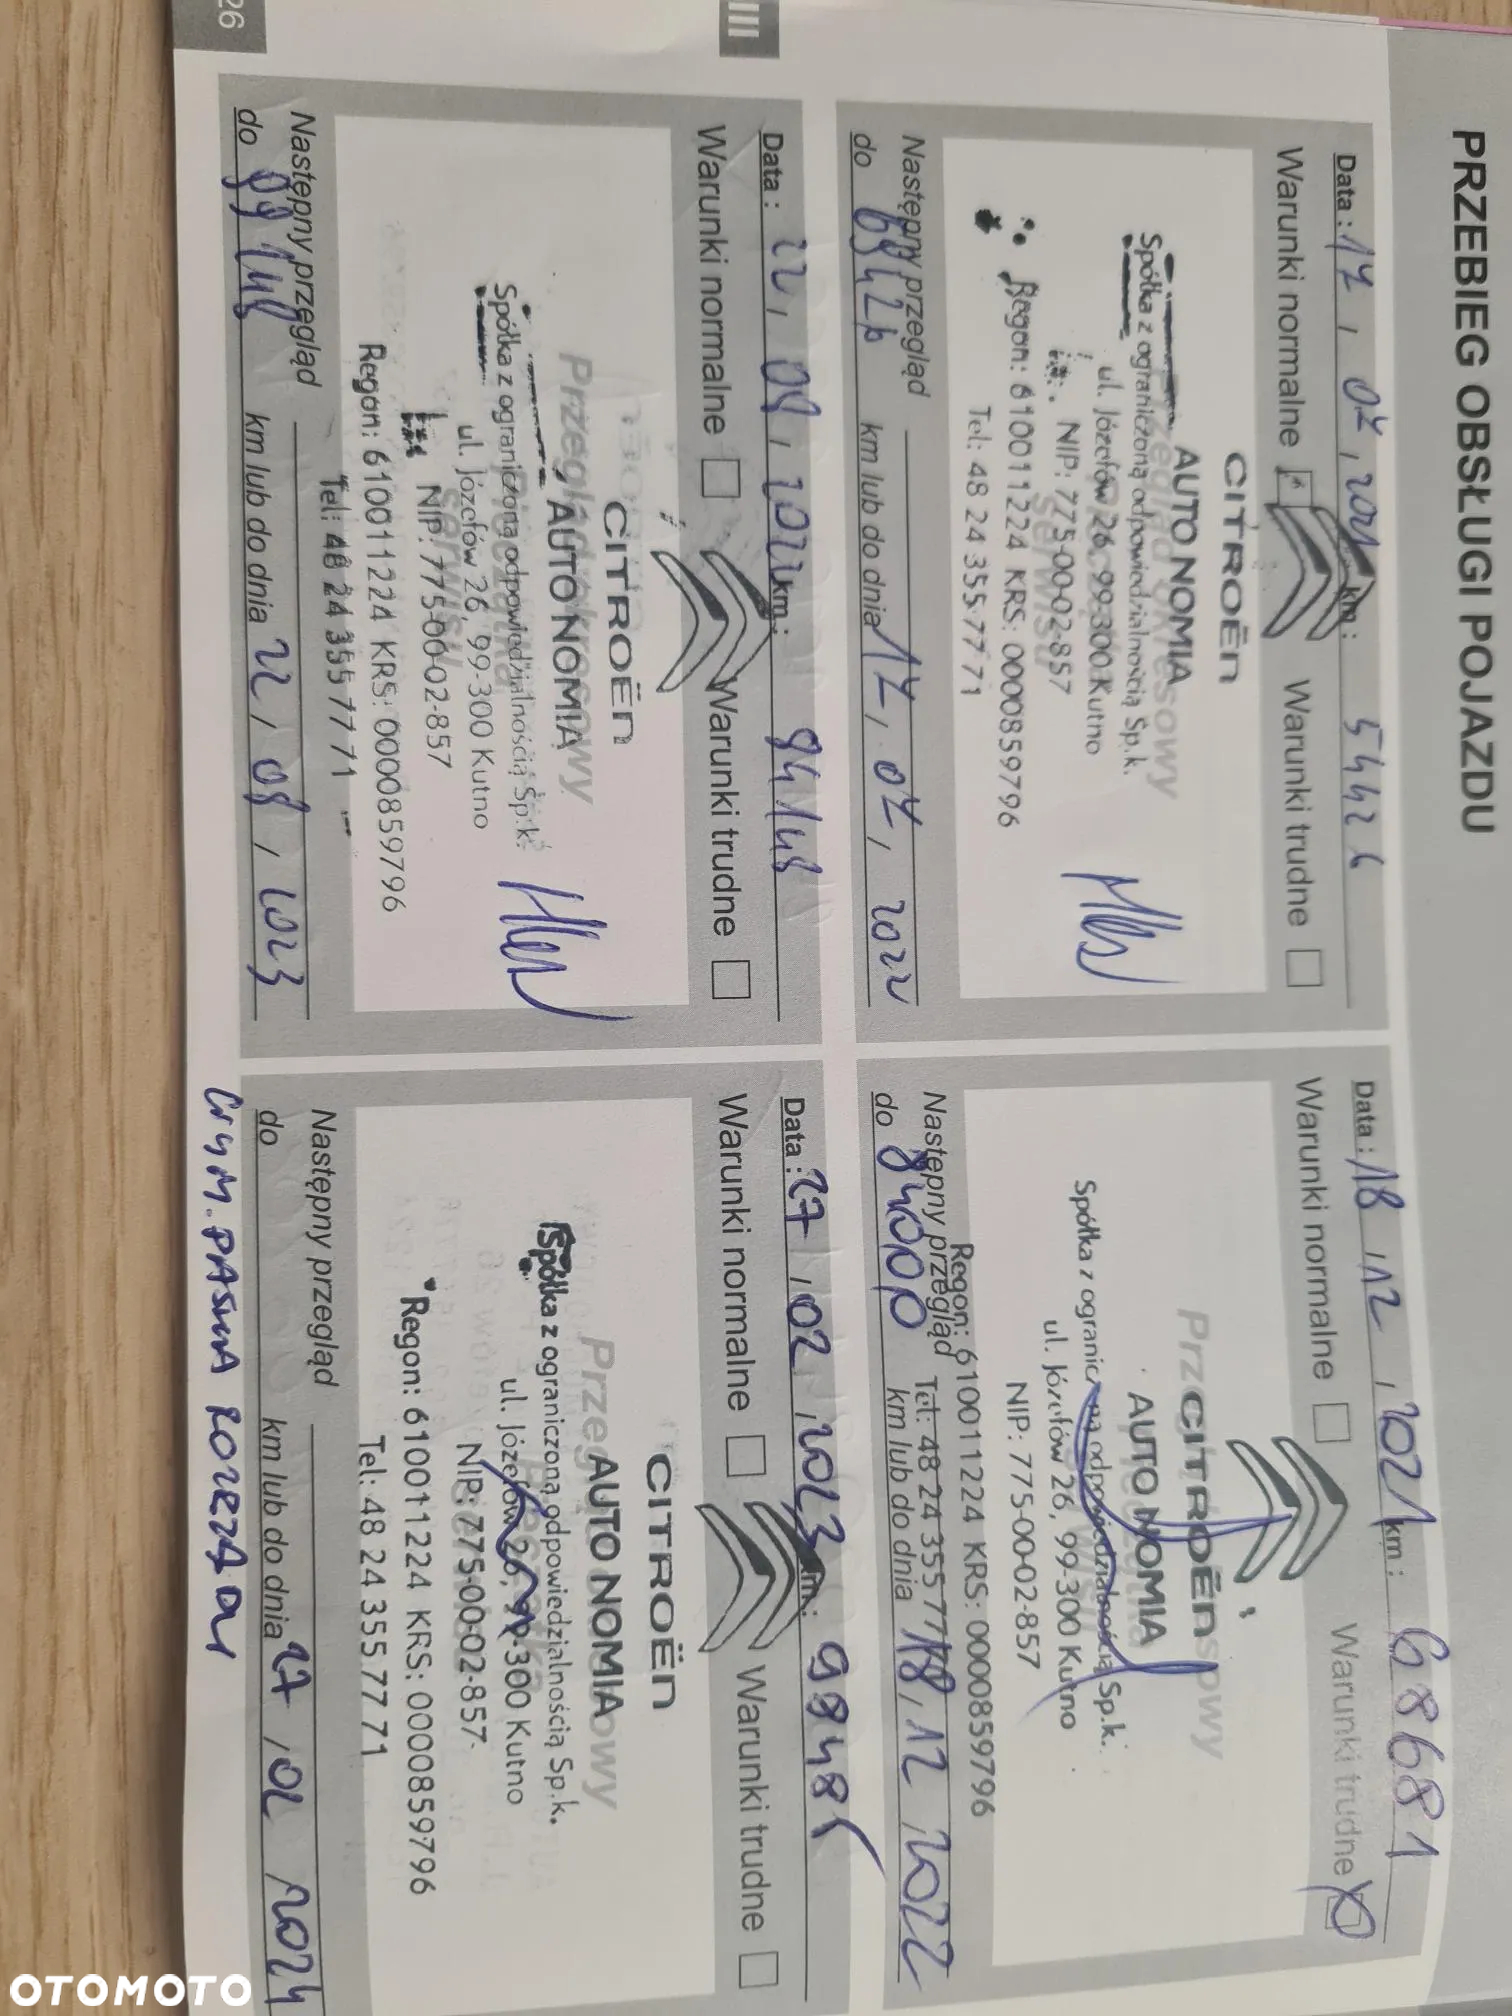 PRZEBIEG OBSŁUGI POJAZDU
Data : 17 . 07 . 2021 km : 54426
Warunki normalne Warunki trudne
CITROËN
AUTONOMIA
Spółka z ograniczoną odpowiedzialnością Sp.k.
ul. Józefów 26, 99-300 Kutno
NIP: 775-00-02-857
Regon: 610011224 KRS: 0000859796
Tel: 48 24 355 77 71
Następny przegląd
do km lub do dnia 17 . 07 . 2022
Data : 18 . 12 . 2021 km : 68681
Warunki normalne Warunki trudne
CITROËN
AUTONOMIA
Spółka z ograniczoną odpowiedzialnością Sp.k.
ul. Józefów 26, 99-300 Kutno
NIP: 775-00-02-857
Regon: 610011224 KRS: 0000859796
Tel: 48 24 355 77
Następny przegląd
do 84000 km lub do dnia 18 . 12 . 2022
III
Data : 22 . 08 . 2022 km : 84148
Warunki normalne Warunki trudne
CITROËN
Przegląd okresowy
AUTONOMIA
Spółka z ograniczoną odpowiedzialnością Sp.k.
ul. Józefów 26, 99-300 Kutno
NIP: 775-00-02-857
Regon: 610011224 KRS: 0000859796
Tel: 48 24 355 77 71
Następny przegląd
do 99148 km lub do dnia 22 . 08 . 2023
Data : 27 . 02 . 2023 km :
Warunki normalne Warunki trudne
CITROËN
AUTONOMIA
Spółka z ograniczoną odpowiedzialnością Sp.k.
ul. Józefów 26, 99-300 Kutno
NIP: 775-00-02-857
Regon: 610011224 KRS: 0000859796
Tel: 48 24 355 77 71
Następny przegląd
do km lub do dnia 27 . 02 2024
26
WYM. PASKA ROZRZĄDU
OTOMOTO